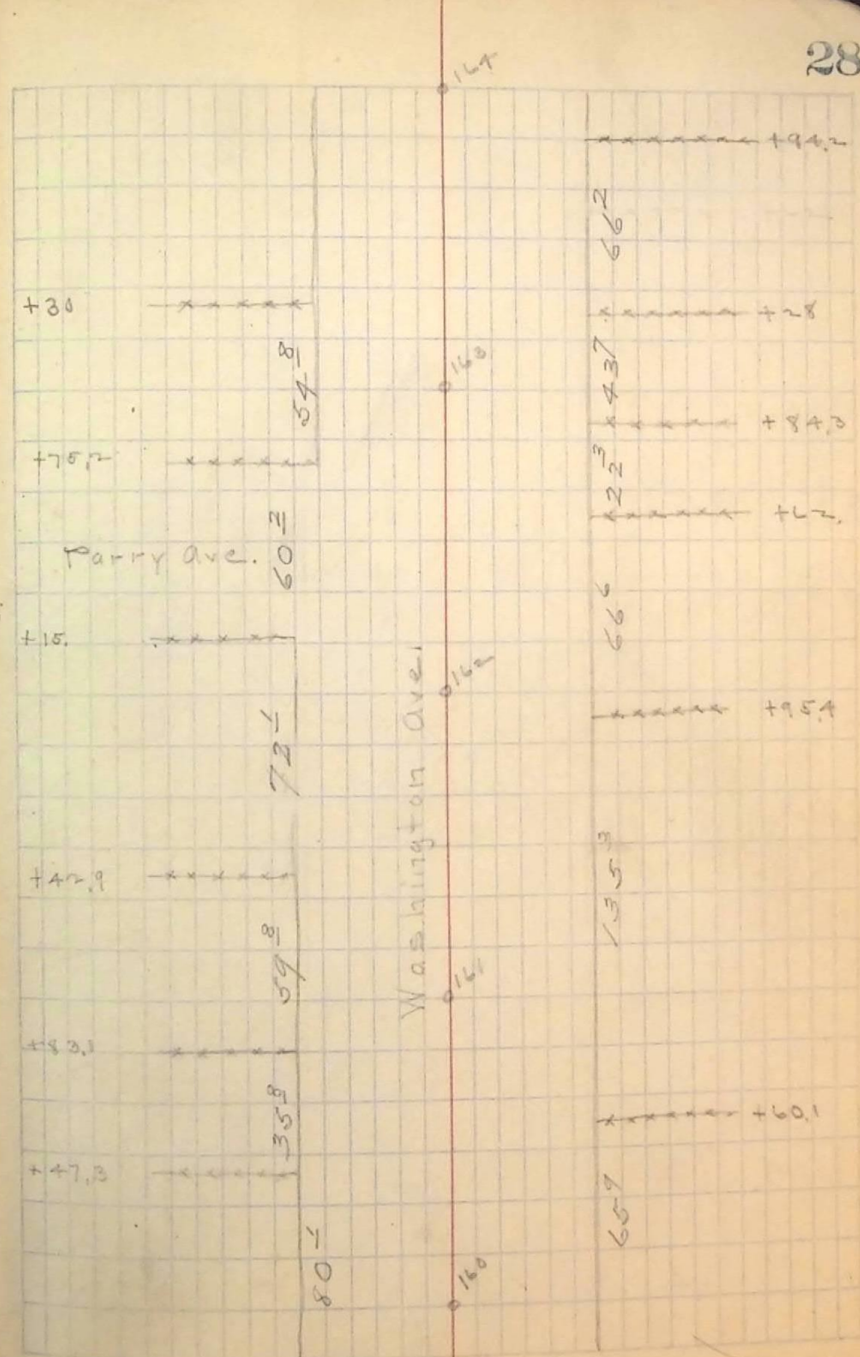 28
164
+94.2
66 2
+30
+28
54 8
163
43 7
+84.3
+75.2
22 3
+62.
60 2
Parry Ave.
66 6
+15.
162
+95.4
72 1
Washington Ave.
+42.9
135 3
59 8
161
+83.1
35 8
+60.1
+47.3
65 9
80 1
160